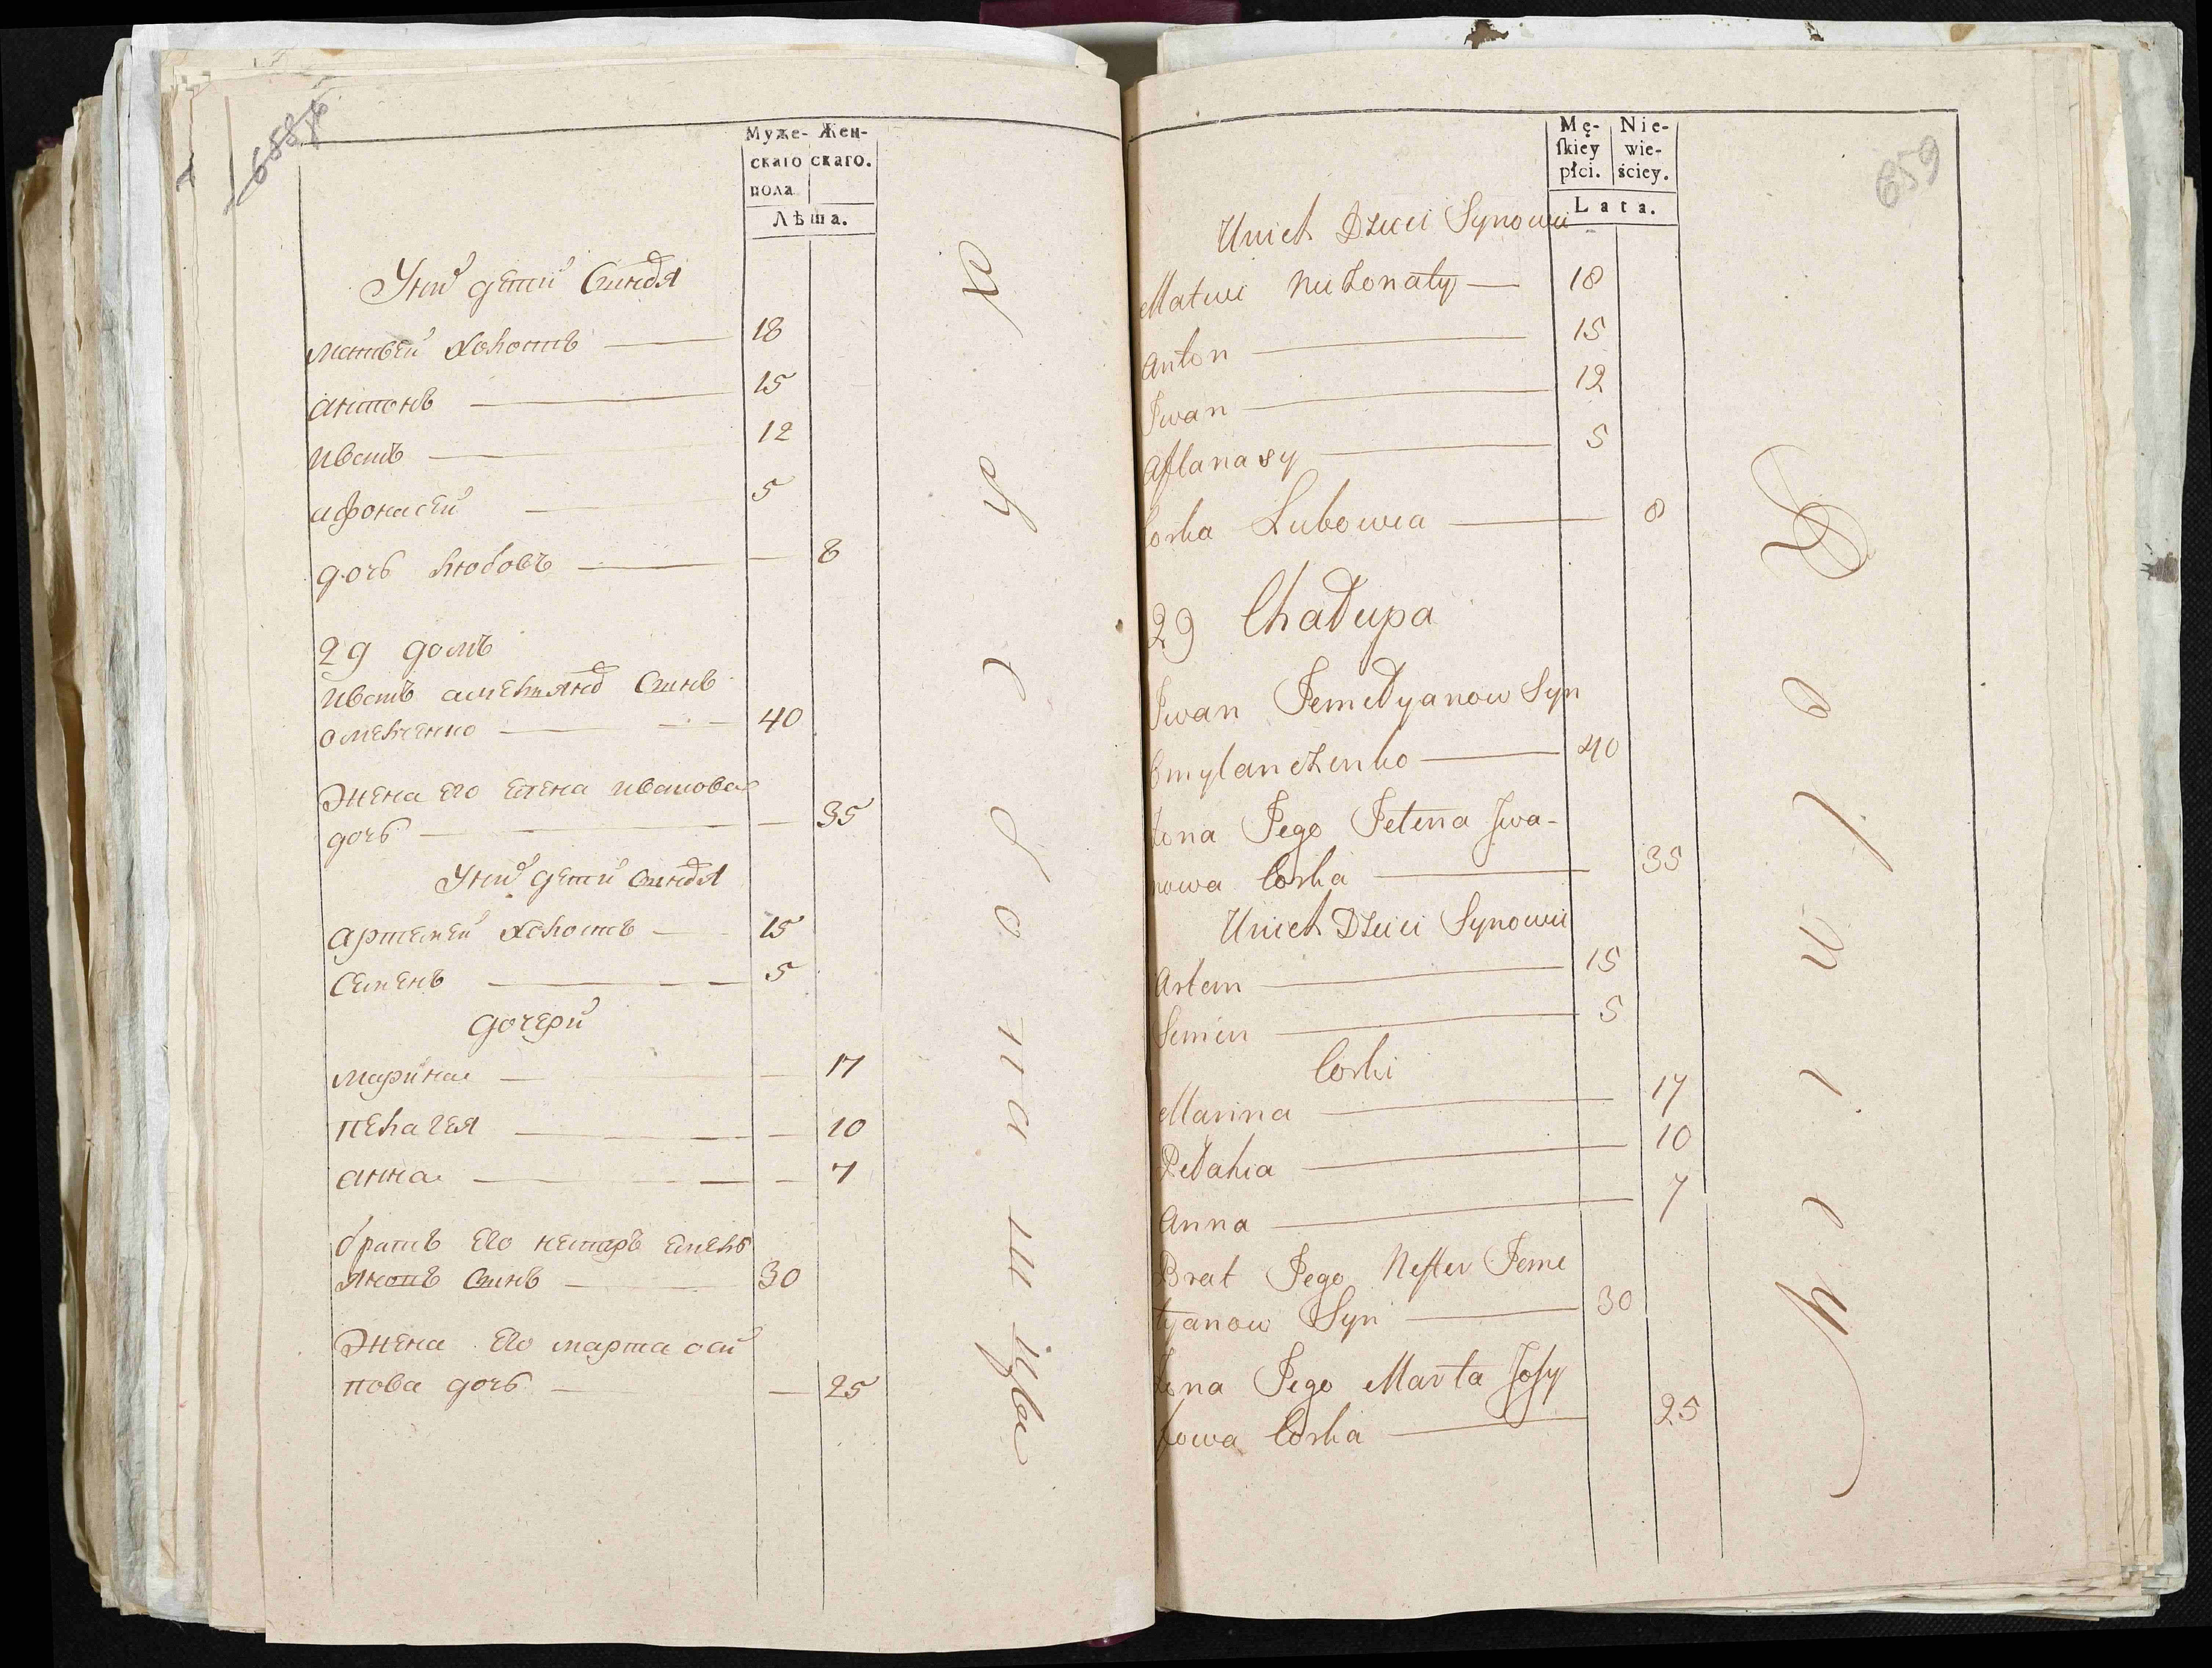 Муже- Жен-
скаго скаго.
пола
Лѣта.
Уних детеи синовя
матвеи холостъ — 18
антонъ — 15
иванъ — 12
афонасеи — 5
дочь любовь — 8
29 домъ
иванъ амельяновъ синъ
омельченко — 40
жена его елена иванова
дочь — 35
Уних детеи синовя
артемеи холостъ — 15
семенъ — 5
дочери
марина — 17
пелагея — 10
анна — 7
братъ его нестеръ емель
яновъ синъ — 30
жена его марта оси
пова дочь — 25
Mę- Nie-
ſkiey wie-
płci. ściey.
Lata.
Unich Dzieci Synowie
Matwi Nieżonaty — 18
Anton — 15
Jwan — 12
Affanasy — 5
Corka Lubowia — 8
29 Chałupa
Jwan Jemełyanow Syn
Omylanczenko — 40
żona Jego Jełena Jwa-
nowa Corka — 35
Unich Dzieci Synowie
Artem — 15
Semen — 5
Corki
Marina — 17
Pełahia — 10
Anna — 7
Brat Jego Nester Jeme
łyanow Syn — 30
żona Jego Marta Josy
powa Corka — 25
659